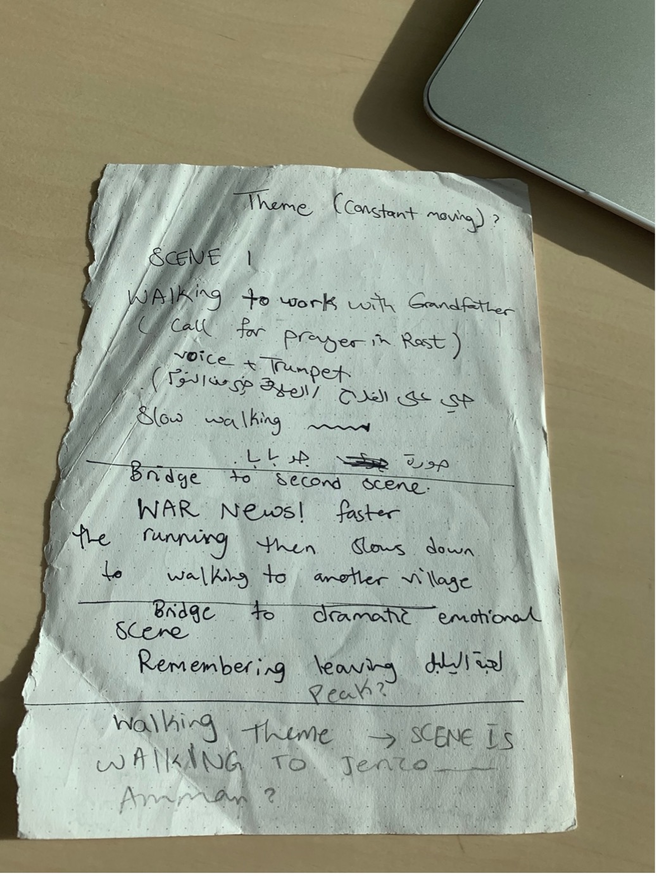 Theme (Constant moving)?
SCENE 1
WAlking to work with Grandfather
( Call for prayer in Rast )
voice + Trumpet
حي على الفلاح / الصلاة خير من النوم )
Slow walking
صورة
Bridge to second scene.
WAR News! faster
the running then slows down
to walking to another village
Bridge to dramatic emotional
scene
Remembering leaving
Peak?
Walking Theme → SCENE IS
WAlKING TO
Amman ?